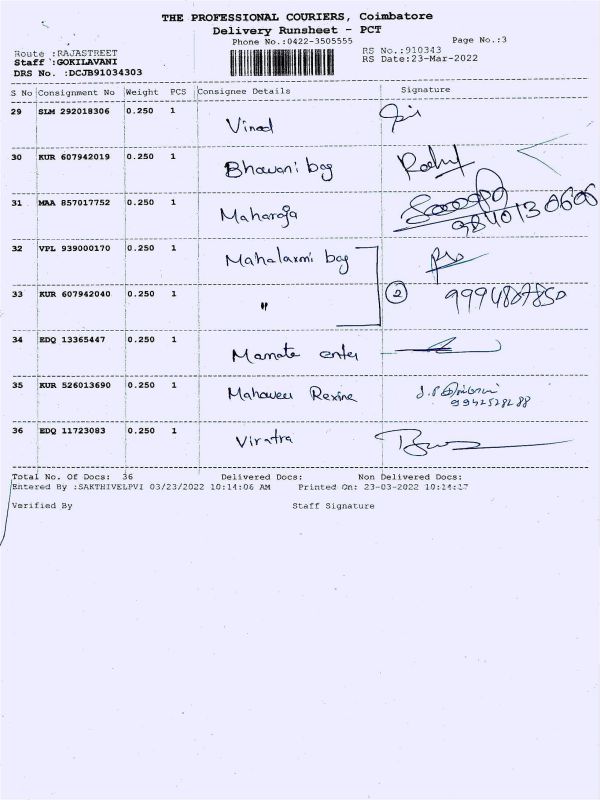 THE PROFESSIONAL COURIERS, Coimbatore
Delivery Runsheet - PCT
Phone No.:0422-3505555 Page No.:3
Route :RAJASTREET RS No.:910343
Staff :GOKILAVANI RS Date:23-Mar-2022
DRS No. :DCJB91034303
S No Consignment No Weight PCS Consignee Details Signature
29 SLM 292018306 0.250 1 Vinod
30 KUR 607942019 0.250 1 Bhavani bag
31 MAA 857017752 0.250 1 Maharaja 9840130606
32 VPL 939000170 0.250 1 Mahalaxmi bag
33 KUR 607942040 0.250 1 " 2 9994807850
34 EDQ 13365447 0.250 1 Mamata enter
35 KUR 526013690 0.250 1 Mahaveer Rexine
9942528288
36 EDQ 11723083 0.250 1 Viratra
Total No. Of Docs: 36 Delivered Docs: Non Delivered Docs:
Entered By :SAKTHIVELPVI 03/23/2022 10:14:06 AM Printed On: 23-03-2022 10:14:17
Verified By Staff Signature